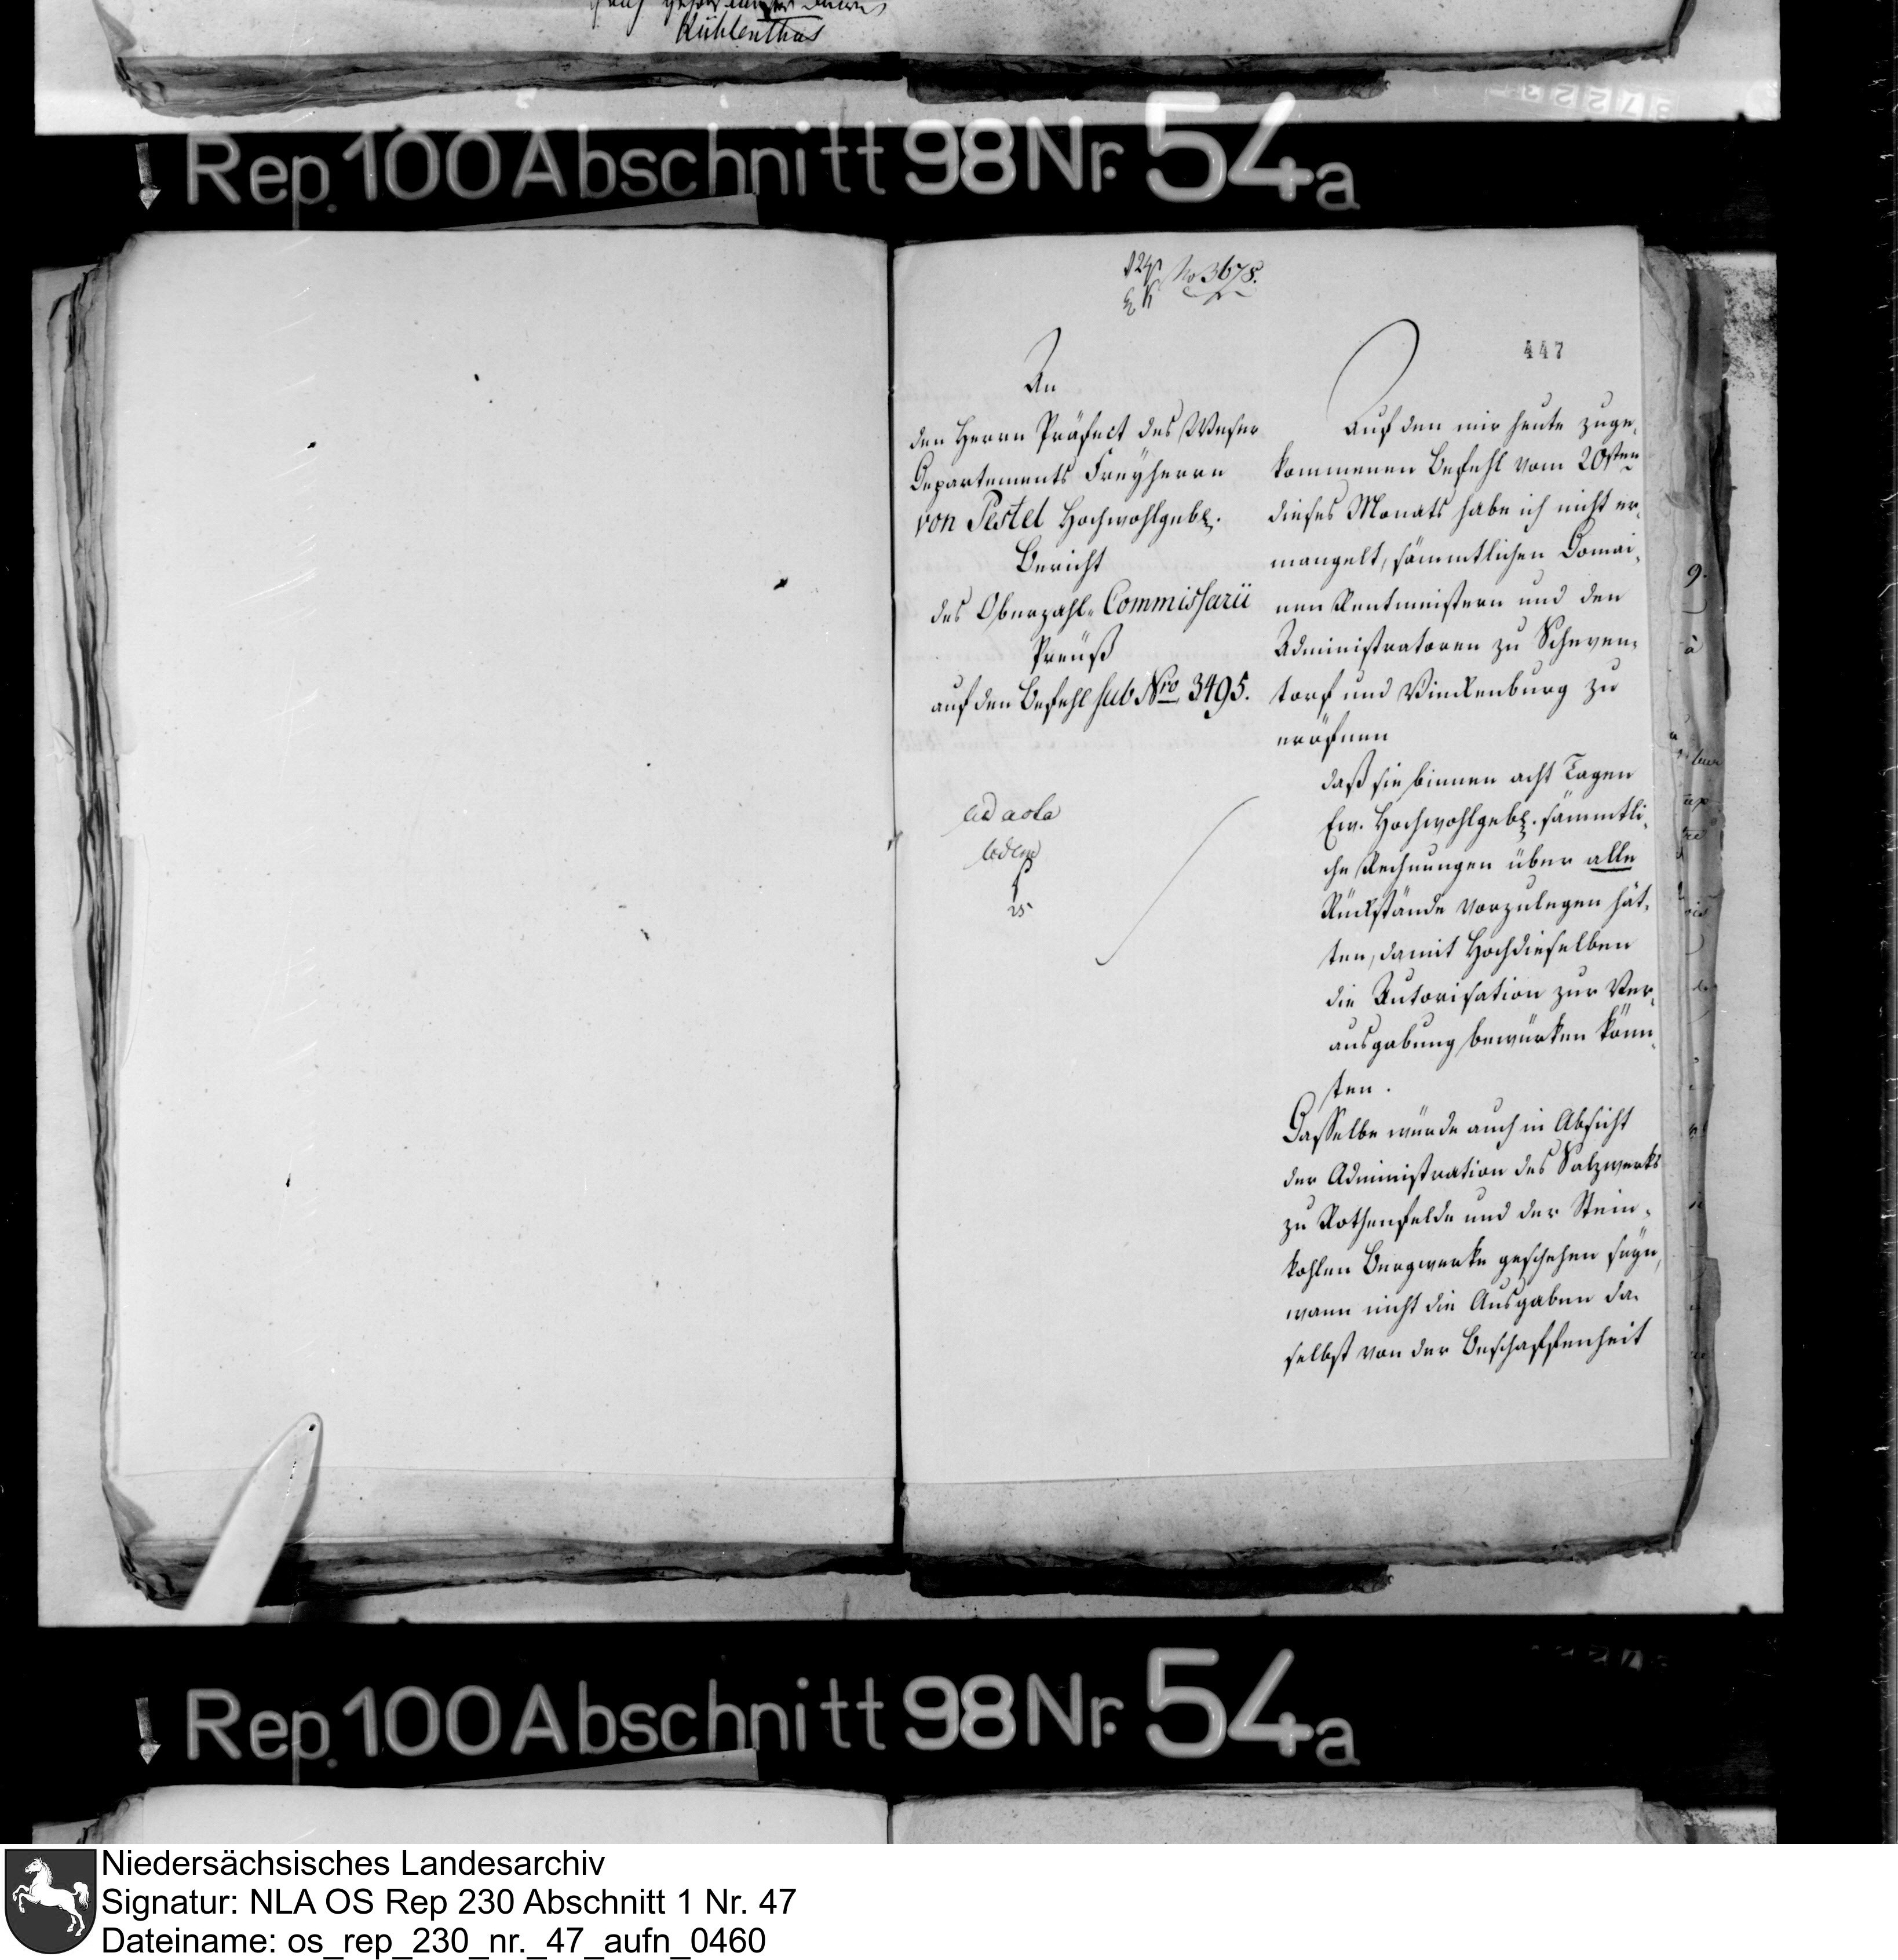 Kühlenthal
Rep. 100 Abschnitt 98 Nr. 54a
No 3678.
447
An
den Herrn Präfect des Weser
Departements Freyherrn
von Pestel Hochwohlgeb.
Bericht
des Oberzahl-Commissarii
Preuß
auf den Befehl sub Nro 3495.
ad acta
25
Auf den mir heute zuge-
kommenen Befehl vom 20sten
dieses Monats habe ich nicht er-
mangelt, sämmtlichen Domai-
nen Rentmeistern und den
Administratoren zu Scheven-
torf und Vincкenburg zu
eröfnen
daß sie binnen acht Tagen
Ew. Hochwohlgeb. sämmtli-
che Rechnungen über alle
Rückstände vorzulegen hät-
ten, damit Hochdieselben
die Autorisation zur Ver-
ausgabung bewürken könn-
ten.
Dasselbe würde auch in Absicht
der Administration des Salzwerks
zu Rothenfelde und der Stein-
kohlen Bergwerke geschehen seyn,
wann nicht die Ausgaben da-
selbst von der Beschaffenheit
Rep. 100 Abschnitt 98 Nr. 54a
Niedersächsisches Landesarchiv
Signatur: NLA OS Rep 230 Abschnitt 1 Nr. 47
Dateiname: os_rep_230_nr._47_aufn_0460